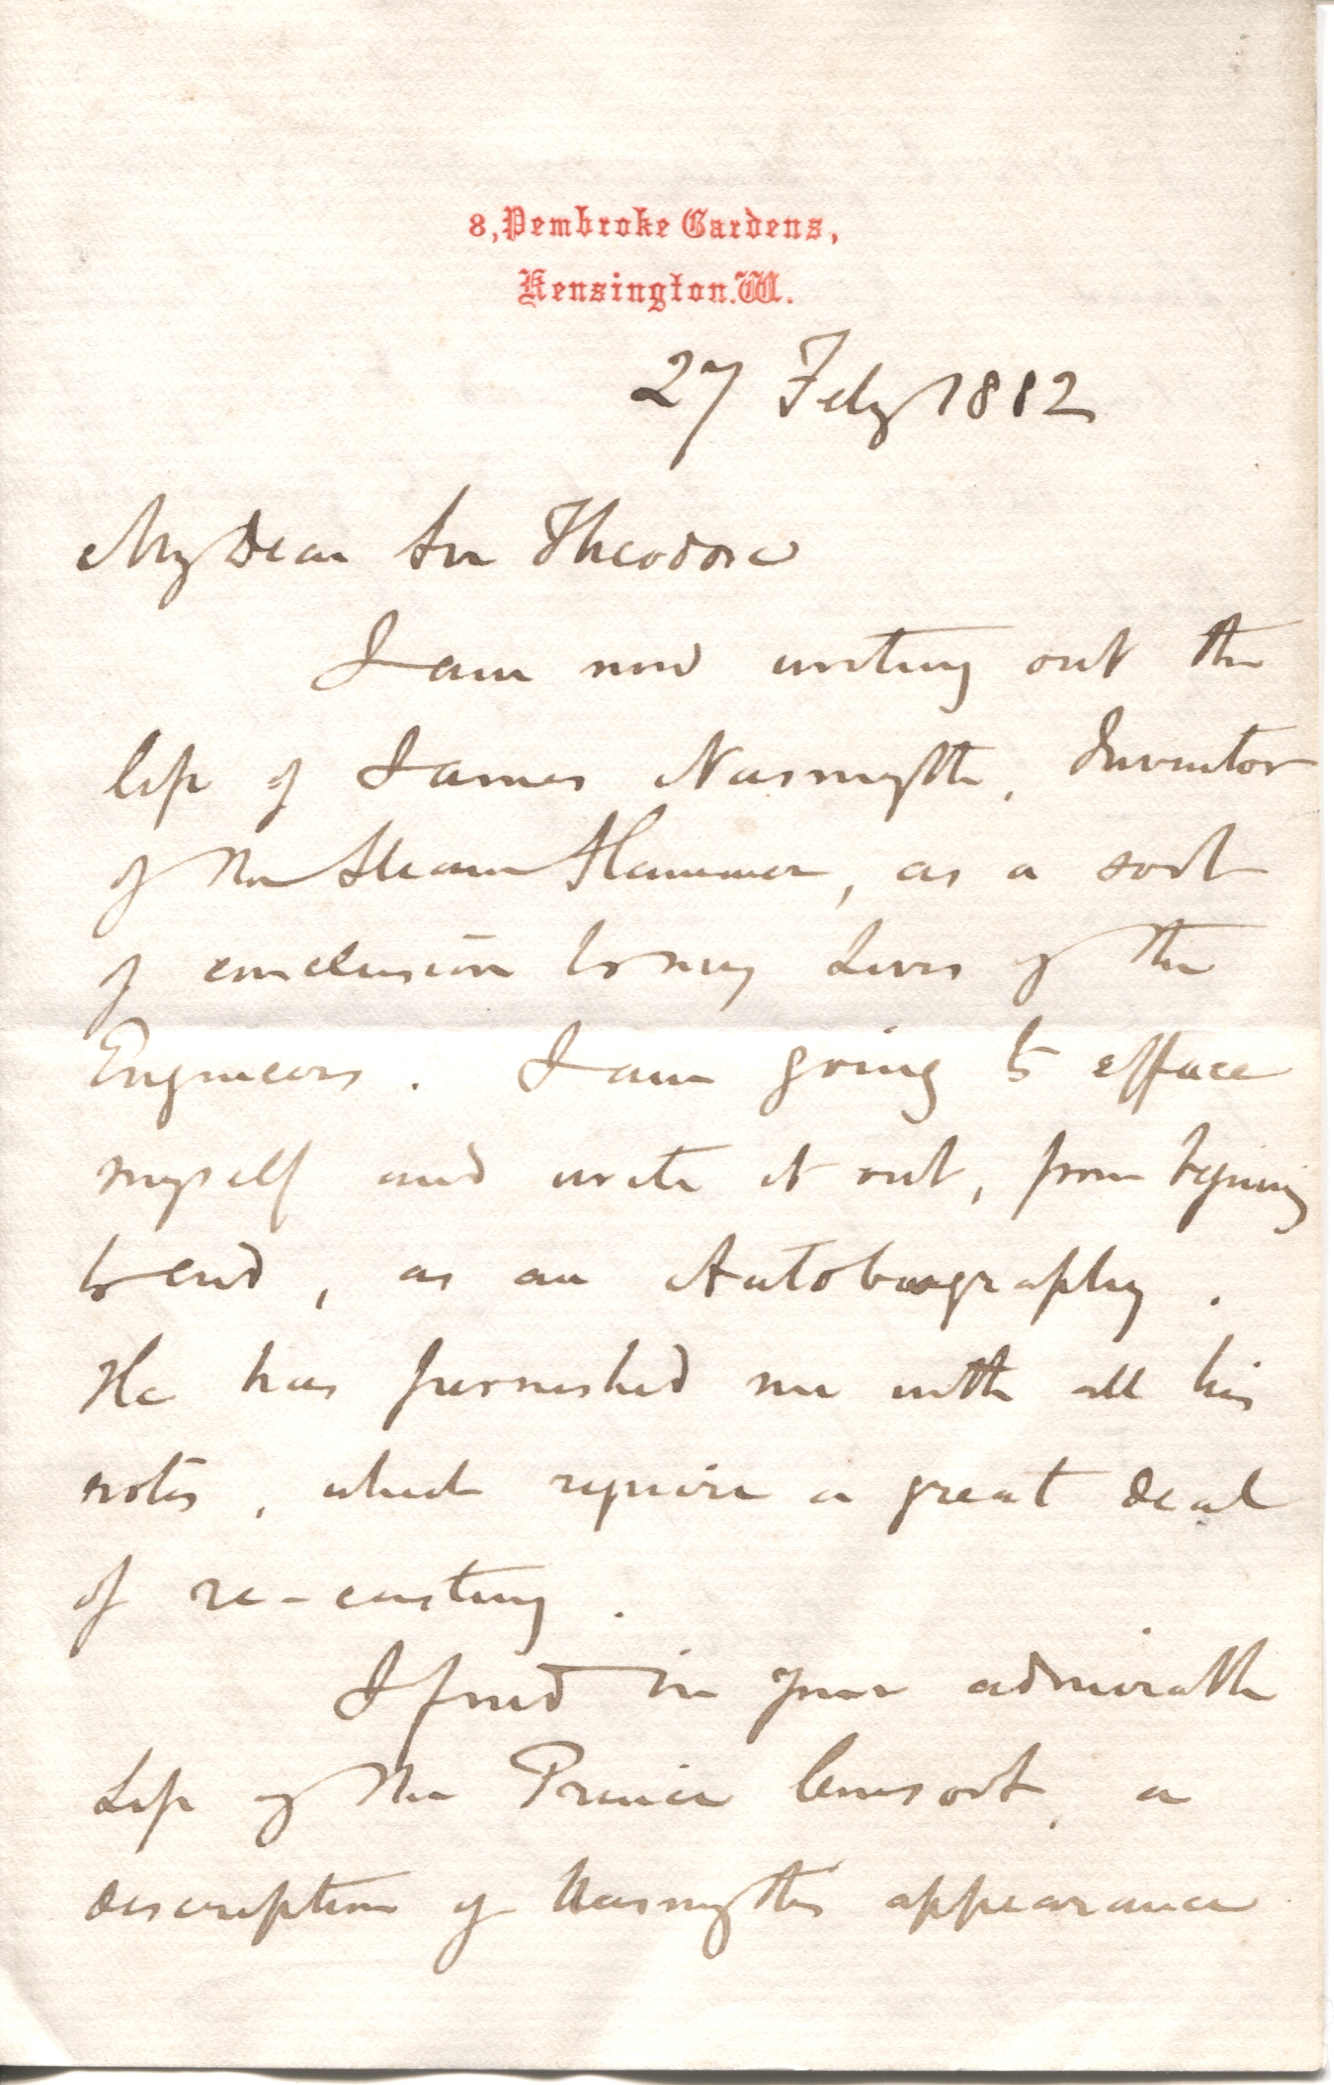 8, Pembroke Gardens,
Kensington. W.
27 Feby 1882
My Dear Sir Theodore
I am now writing out the
life of James Nasmyth, Inventor
of the Steam Hammer, as a sort
of conclusion to my Lives of the
Engineers. I am going to efface
myself and write it out, from begining
to end, as an Autobiography.
He has furnished me with all his
notes, which require a great deal
of re-casting.
I find in your admirable
Life of the Prince Consort, a
description of Nasmyth's appearance